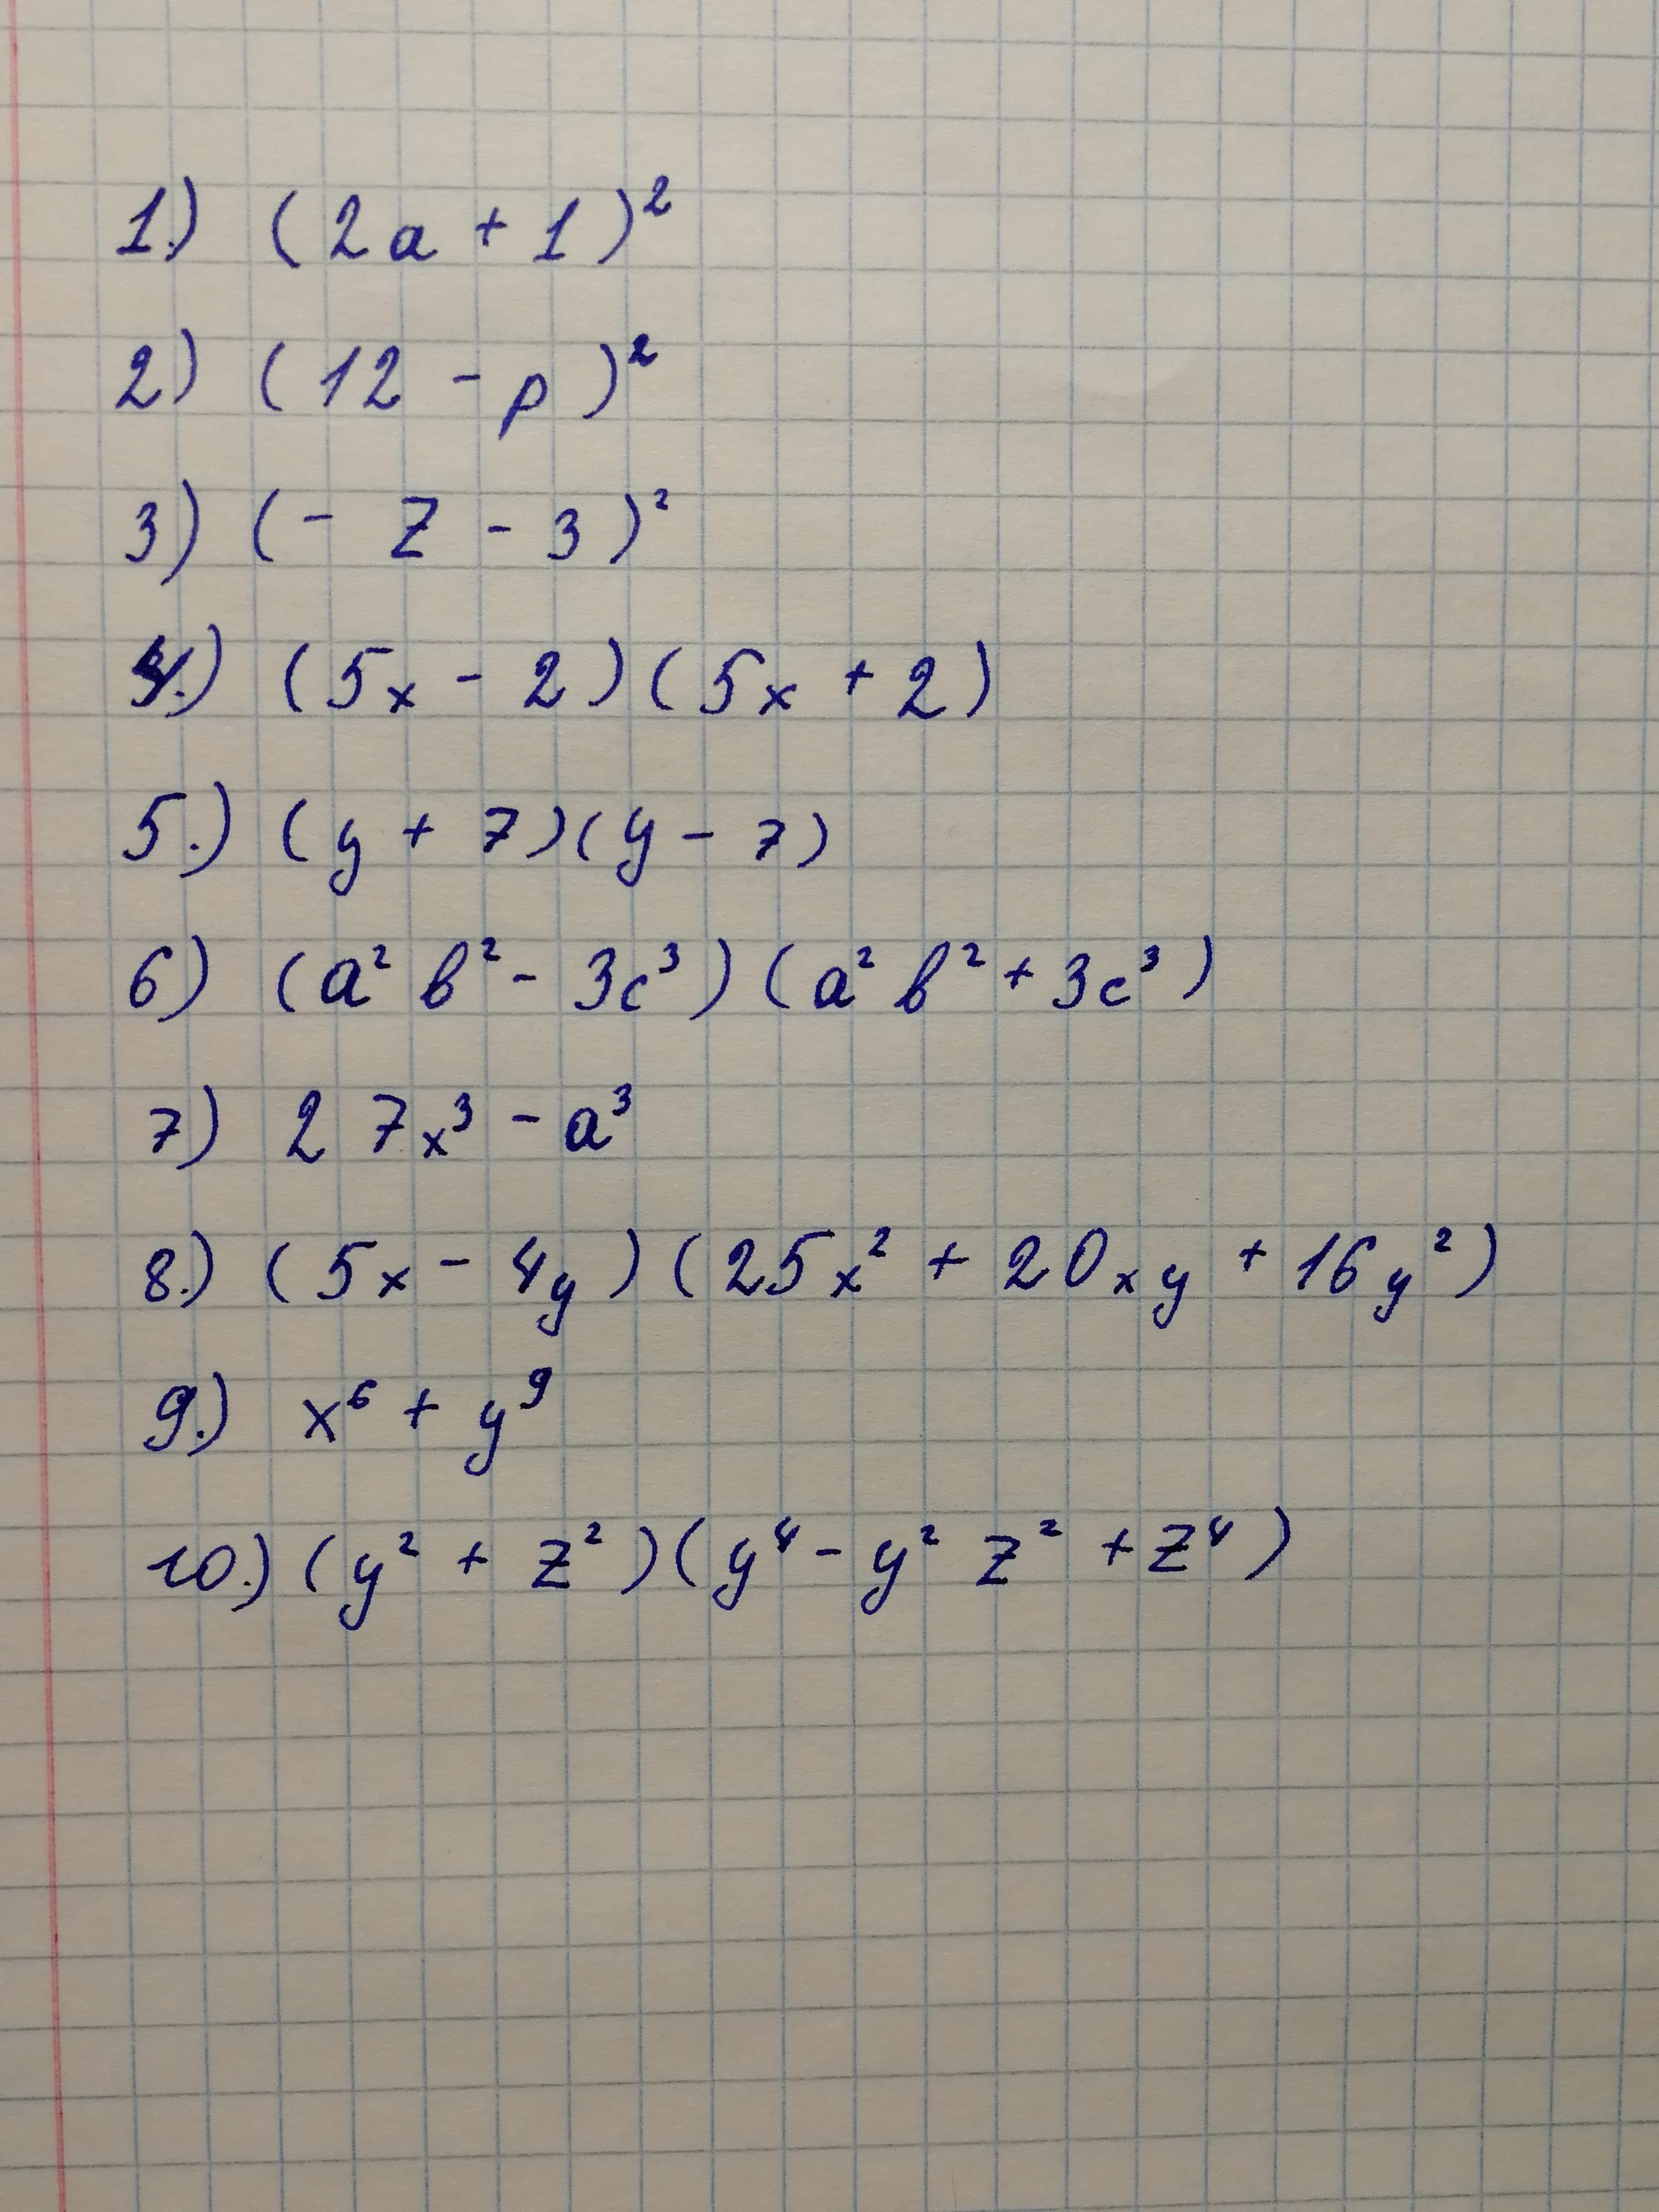 1.) (2a + 1)²
2) (12 - p)²
3) (- z - 3)²
4.) (5x - 2)(5x + 2)
5.) (y + 7)(y - 7)
6) (a² b² - 3c³)(a² b² + 3c³)
7) 27x³ - a³
8.) (5x - 4y)(25x² + 20xy + 16y²)
9.) x⁶ + y⁹
10.) (y² + z²)(y⁴ - y² z² + z⁴)